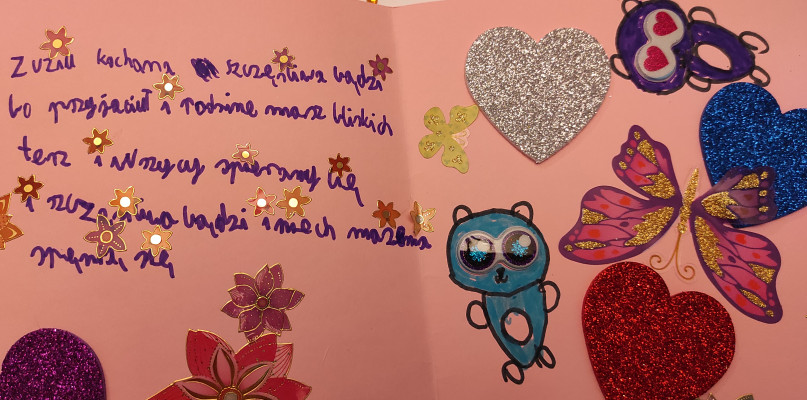 Zuziu kochana szczęśliwa bądź
bo przyjaciuł i rodzine masz bliskich
tesz i wszycy się
i bądź i niech mażenia
spęnią się